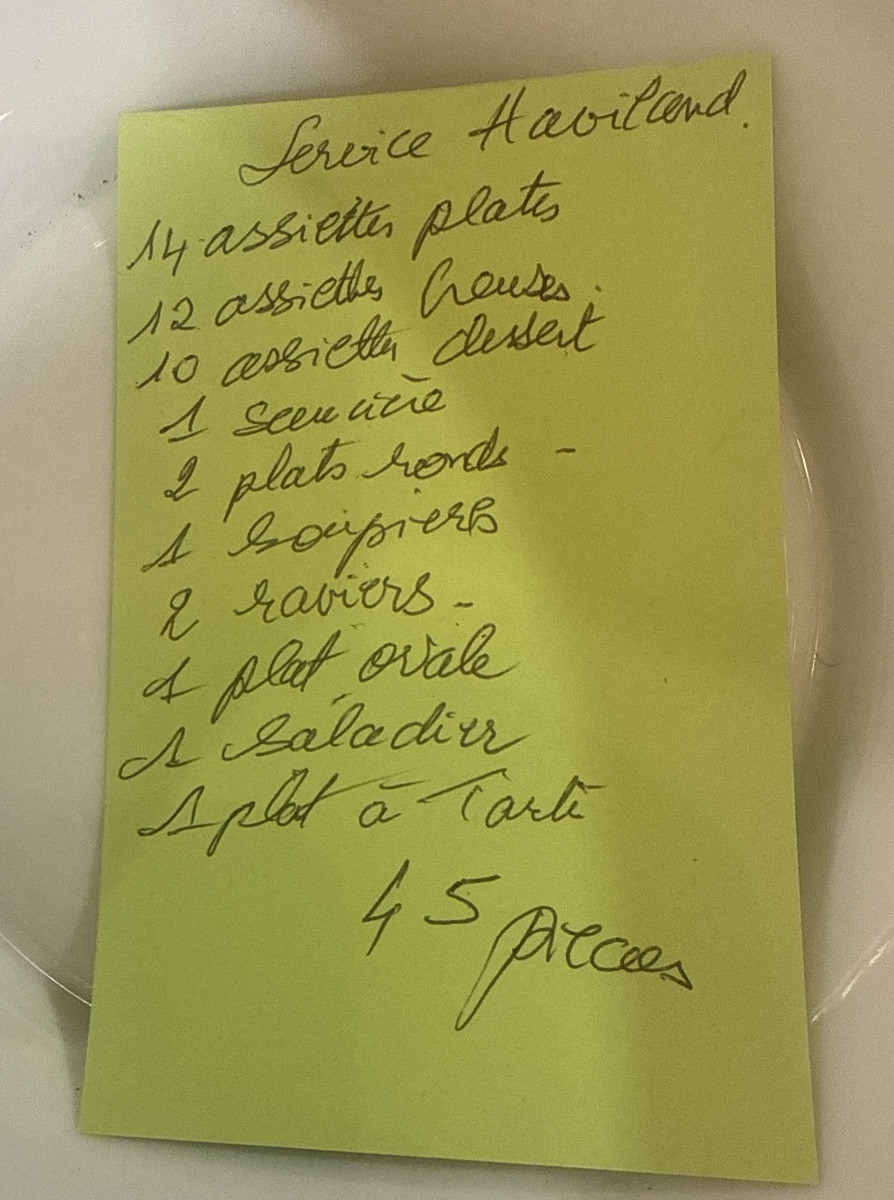 Service Haviland.
14 assiettes plates
12 assiettes creuses.
10 assiettes dessert
1 saucière
2 plats ronds -
1 soupière
2 raviers -
1 plat ovale
1 saladier
1 plat à Tarte
45 pièces